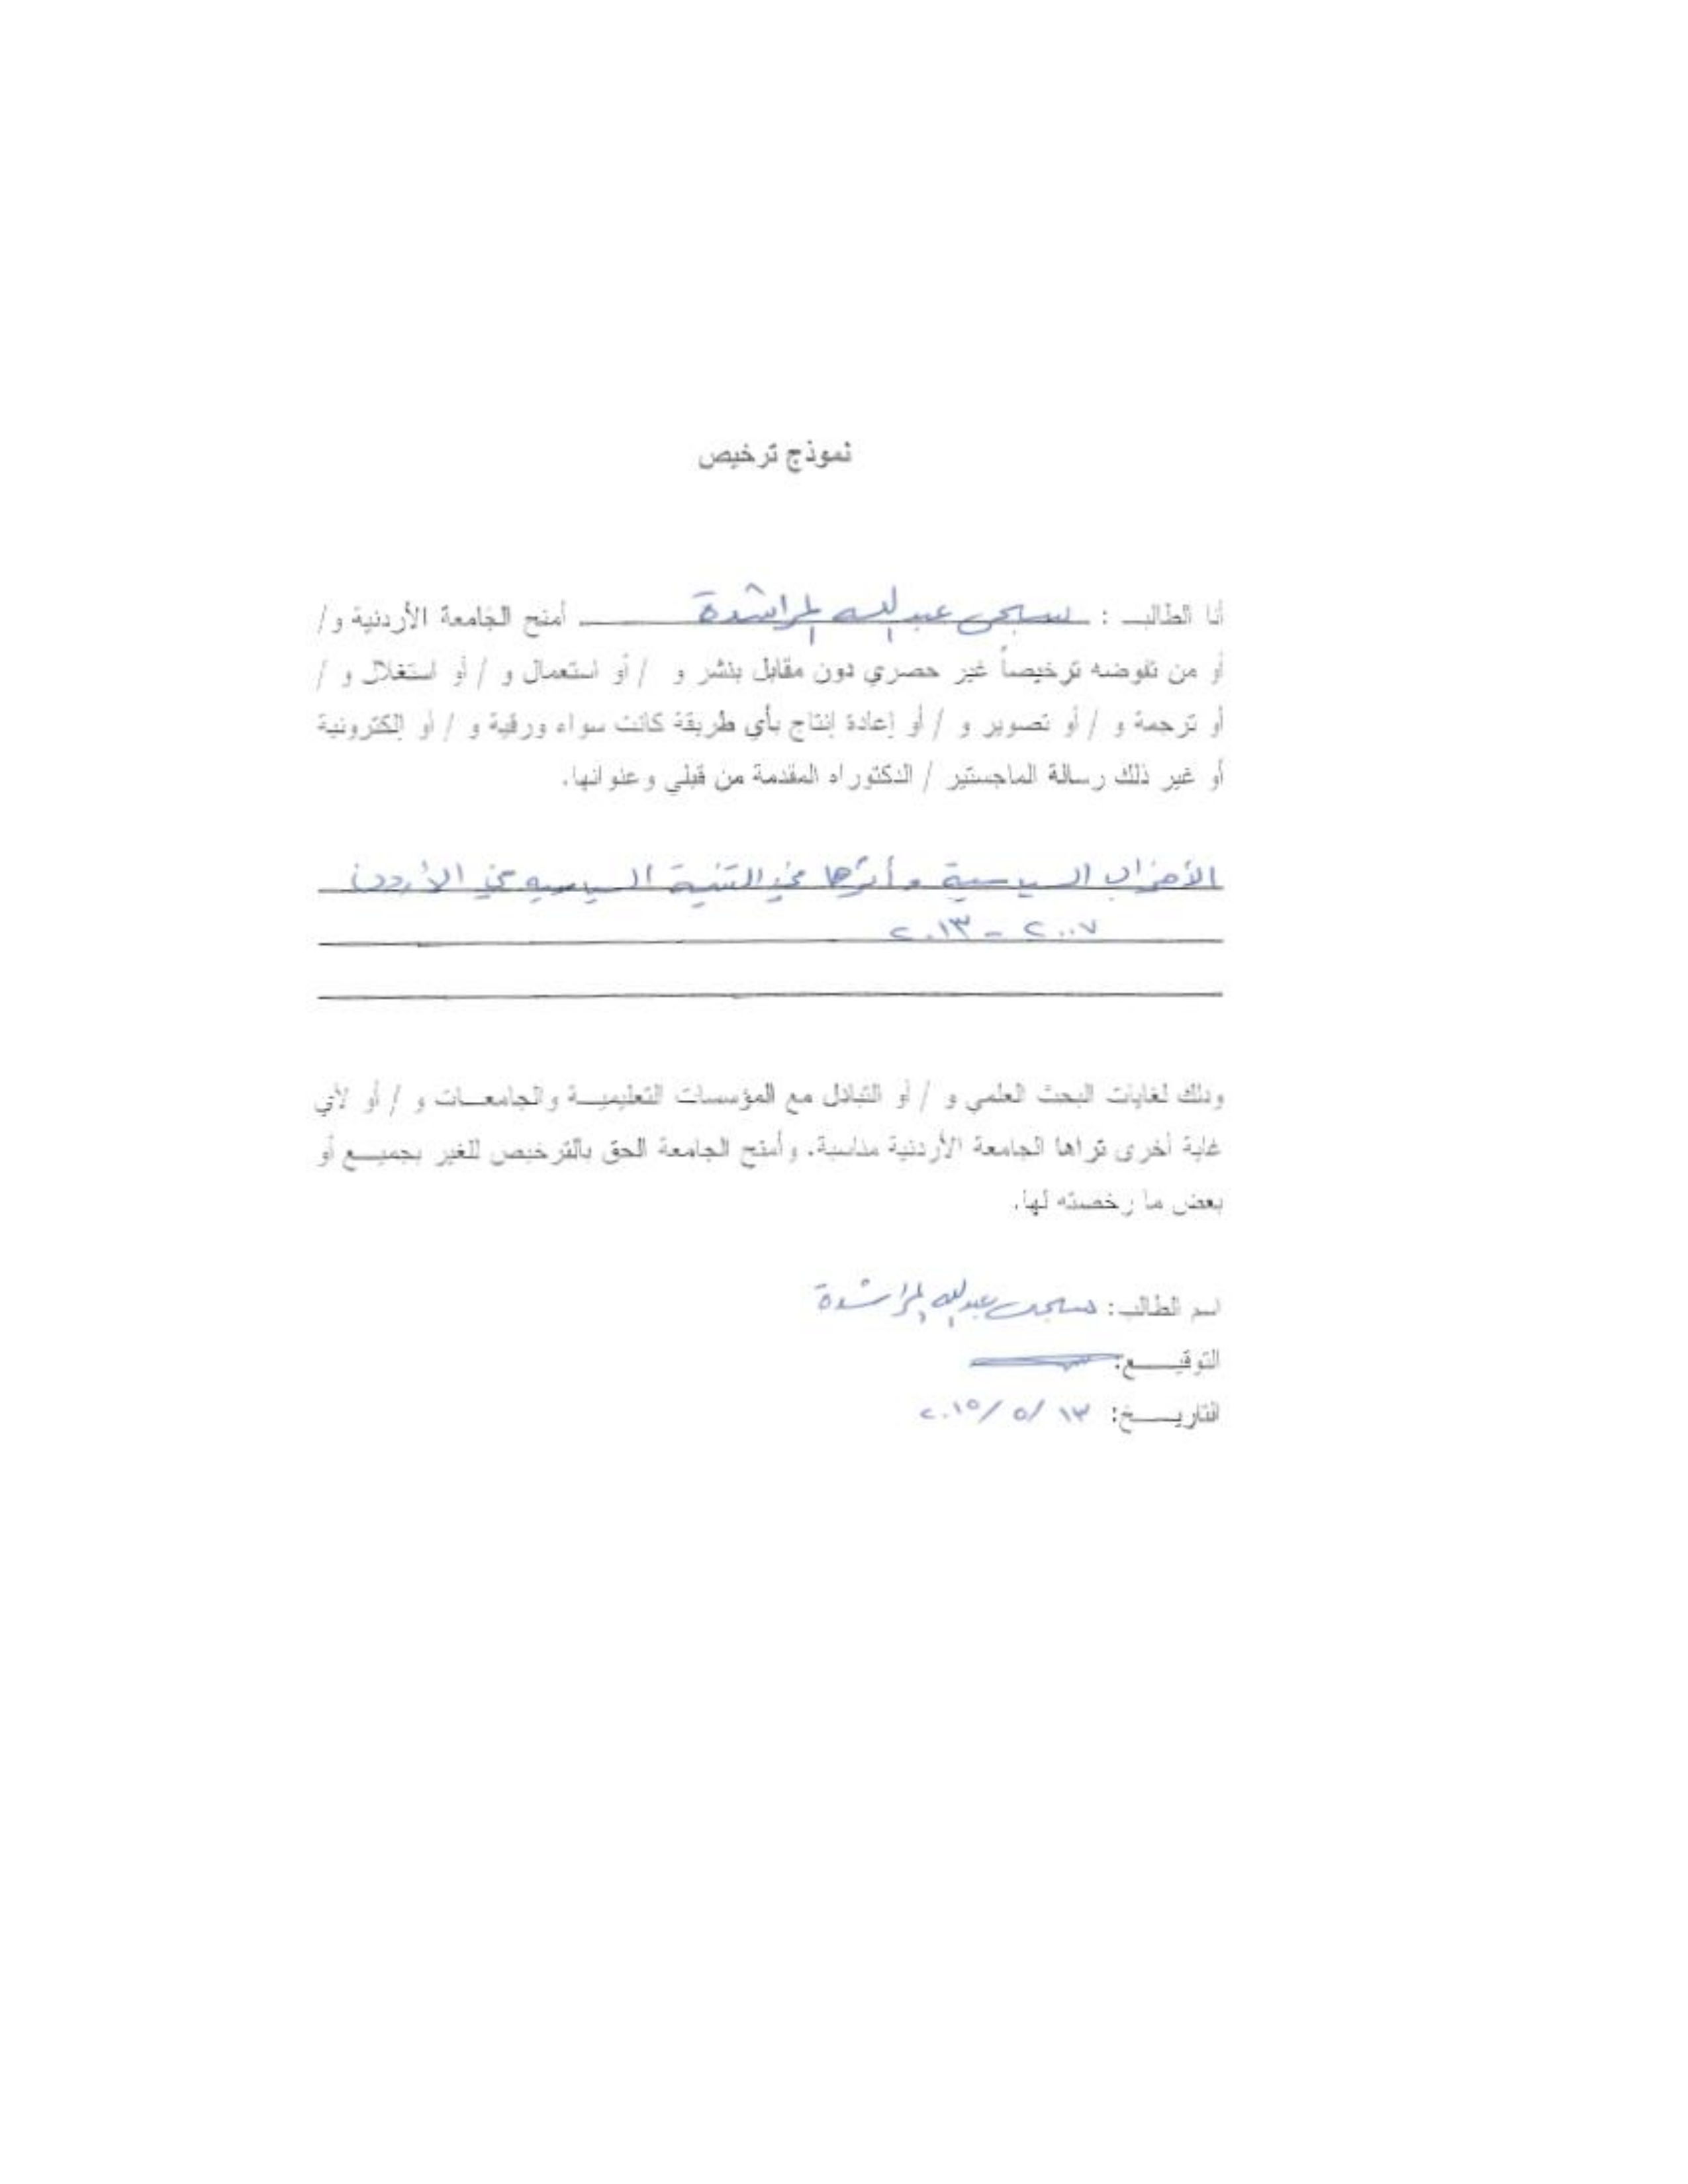 نموذج ترخيص
أنا الطالب : عبدالله المراشدة أمنح الجامعة الأردنية و/
أو من تفوضه ترخيصاً غير حصري دون مقابل بنشر و / أو استعمال و / أو استغلال و /
أو ترجمة و / أو تصوير و / أو إعادة إنتاج بأي طريقة كانت سواء ورقية و / أو إلكترونية
أو غير ذلك رسالة الماجستير / الدكتوراه المقدمة من قبلي وعنوانها.
الأحزاب السياسية وأثرها في التنمية السياسيه في الأردن
٢٠٠٧ - ٢٠١٣
وذلك لغايات البحث العلمي و / أو التبادل مع المؤسسات التعليمية والجامعات و / أو لأي
غاية أخرى تراها الجامعة الأردنية مناسبة، وأمنح الجامعة الحق بالترخيص للغير بجميع أو
بعض ما رخصته لها.
اسم الطالب: عبدالله المراشدة
التوقيع:
التاريخ: ١٣ /٥ /٢٠١٥